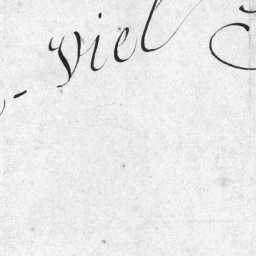 - viel